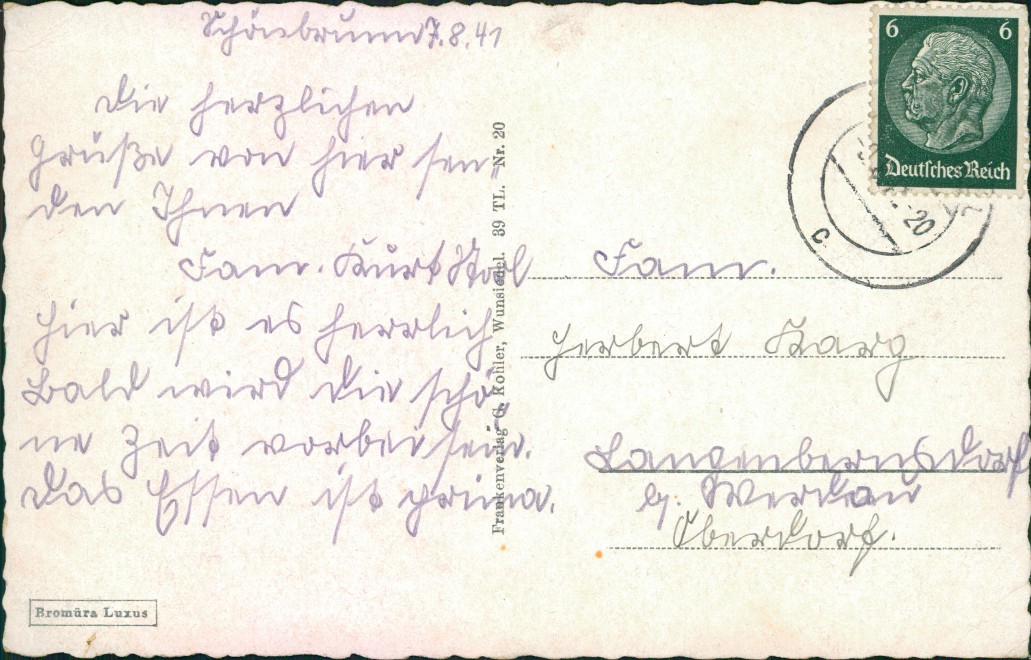 Schönbrunn 7.8.41
Die herzlichen
Grüße von hier sen-
den Ihnen
Fam. Kurt
Hier ist es herrlich
Bald wird die schö-
ne Zeit vorbei sein.
Das Essen ist prima.
Bromüra Luxus
Frankenverlag G. Kohler, Wunsiedel. 39 TL. Nr. 20
6 6
Deutsches Reich
c
20
Fam.
Herbert Karg
Langenbernsdorf
b. Werdau
Oberdorf.